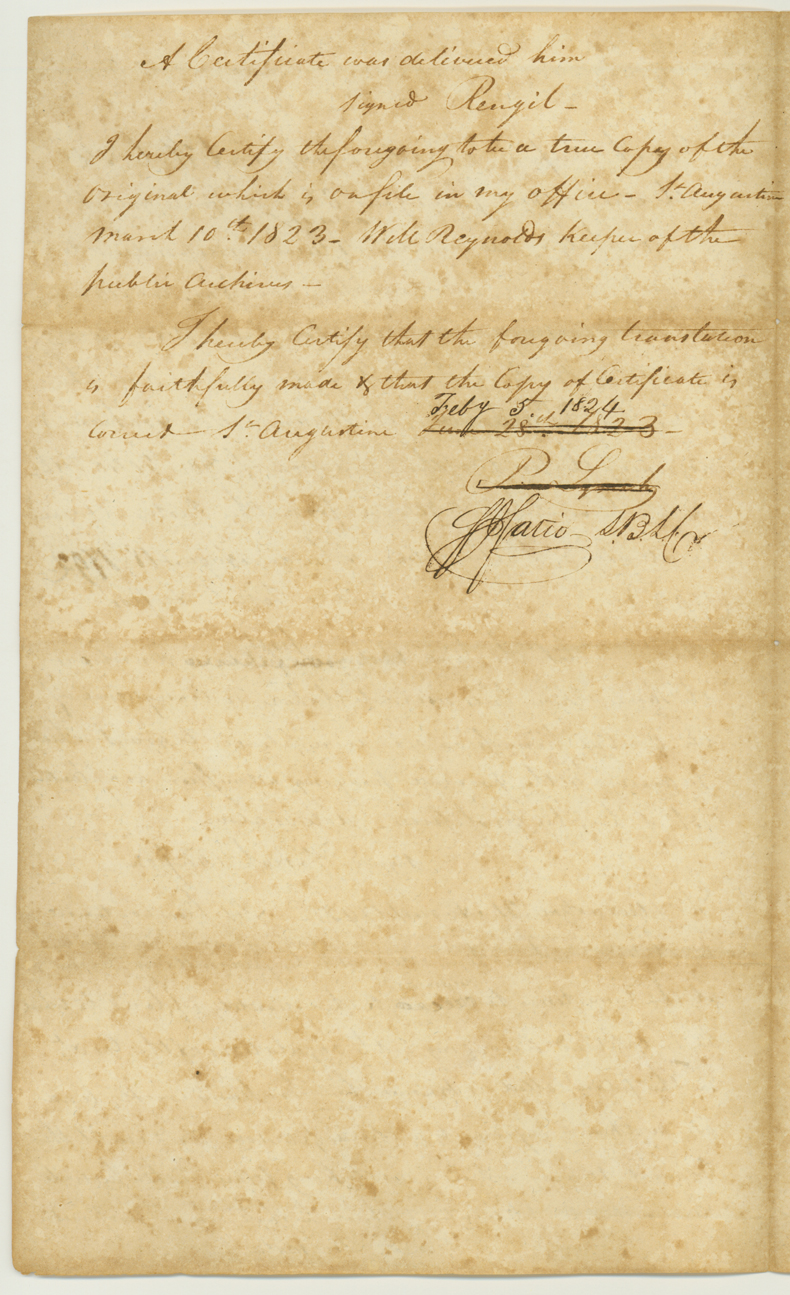 A Certificate was delivered him
signed Rengil -
I hereby Certify the foregoing to be a true Copy of the
Original which is on file in my office - St. Augustine
March 10th 1823 - Will Reynolds Keeper of the
public Archives -
I hereby Certify that the foregoing translation
is faithfully made & that the Copy of Certificate is
Correct - St. Augustine
Feby 5th 1824
28th 1823 -
P. Lynch